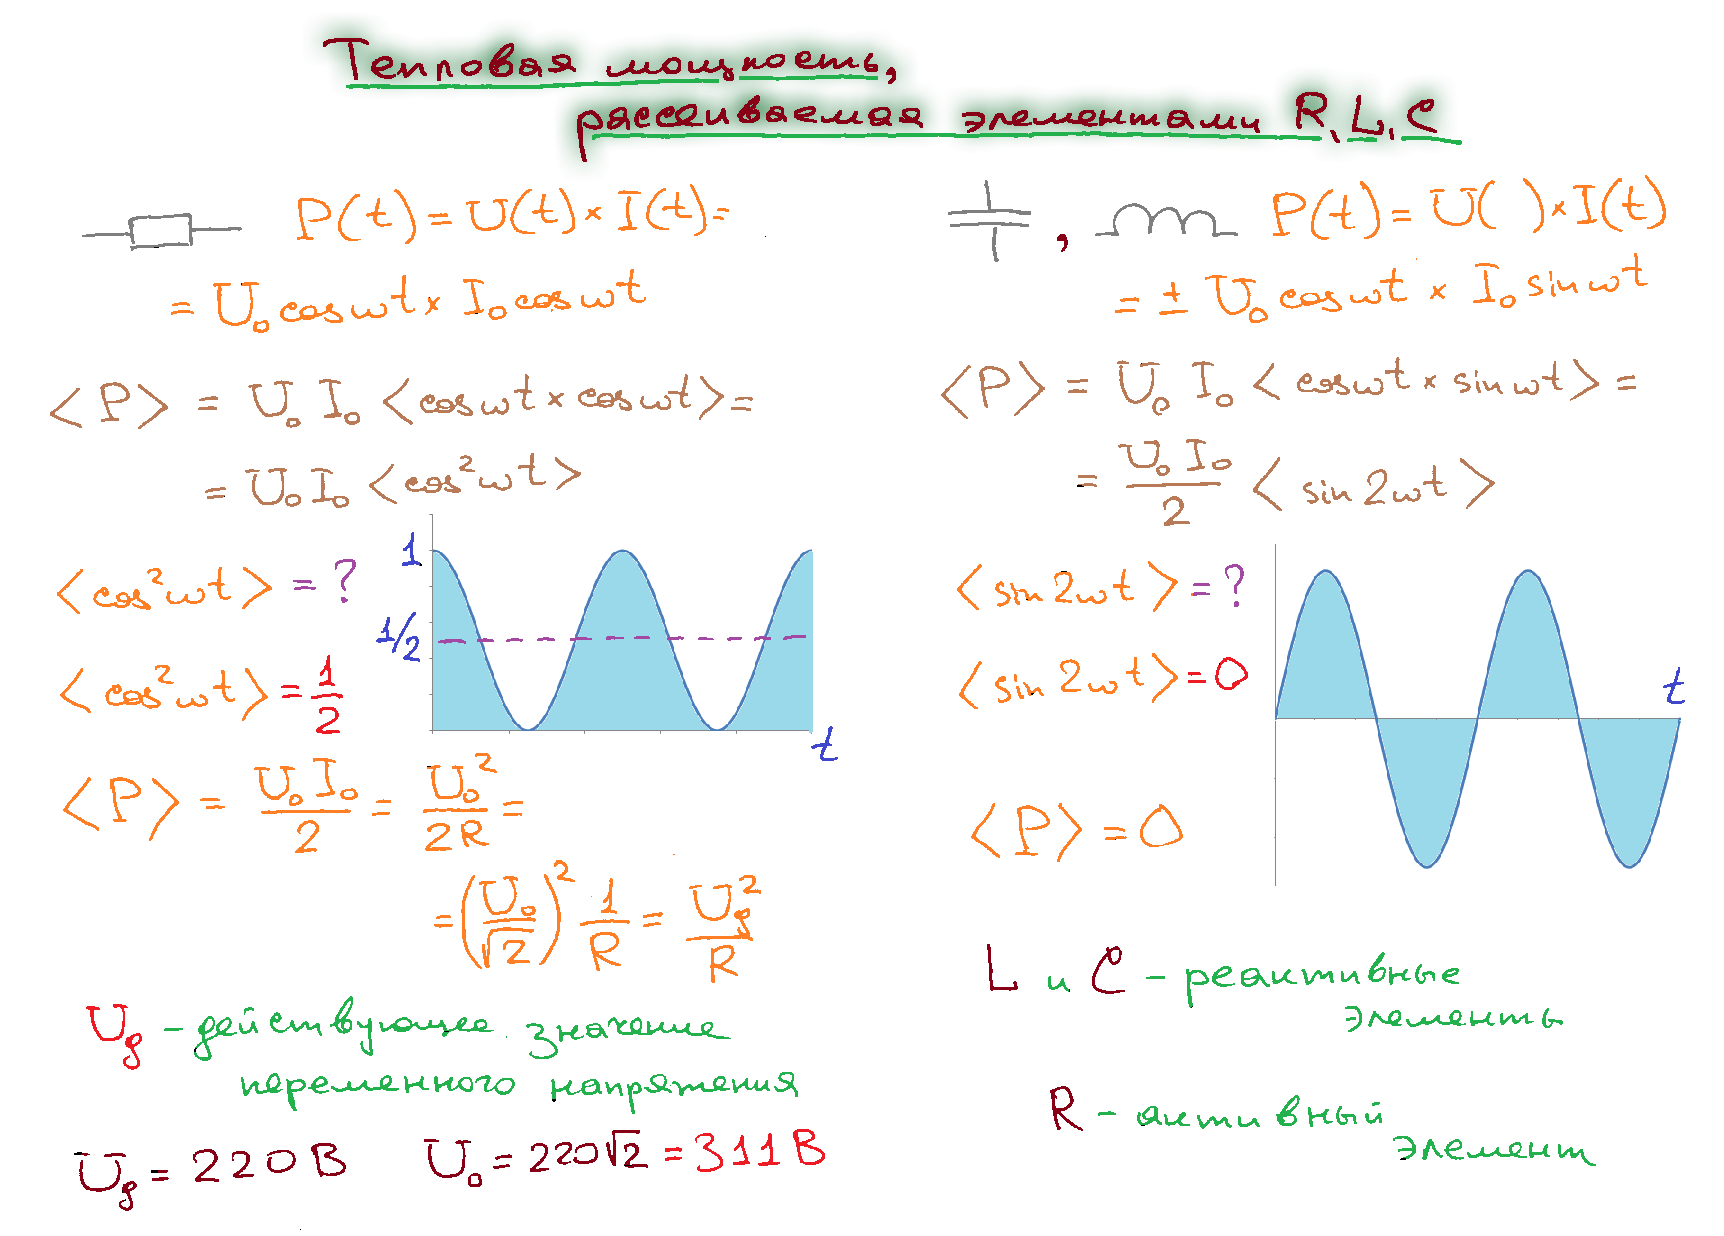 Тепловая мощность,
рассеиваемая элементами R, L, C
P(t) = U(t) × I(t) =
= U₀ cos ωt × I₀ cos ωt
<P> = U₀ I₀ <cos ωt × cos ωt> =
= U₀ I₀ <cos² ωt>
<cos² ωt> = ?
<cos² ωt> = 1/2
1
1/2
t
<P> = U₀ I₀ / 2 = U₀² / 2R =
= (U₀ / √2)² 1/R = U_g² / R
U_g - действующее значение
переменного напряжения
U_g = 220 В U₀ = 220√2 = 311 В
, P(t) = U( ) × I(t)
= ± U₀ cos ωt × I₀ sin ωt
<P> = U₀ I₀ <cos ωt × sin ωt> =
= U₀ I₀ / 2 <sin 2ωt>
<sin 2ωt> = ?
<sin 2ωt> = 0
t
<P> = 0
L и C - реактивные
элементы
R - активный
элемент